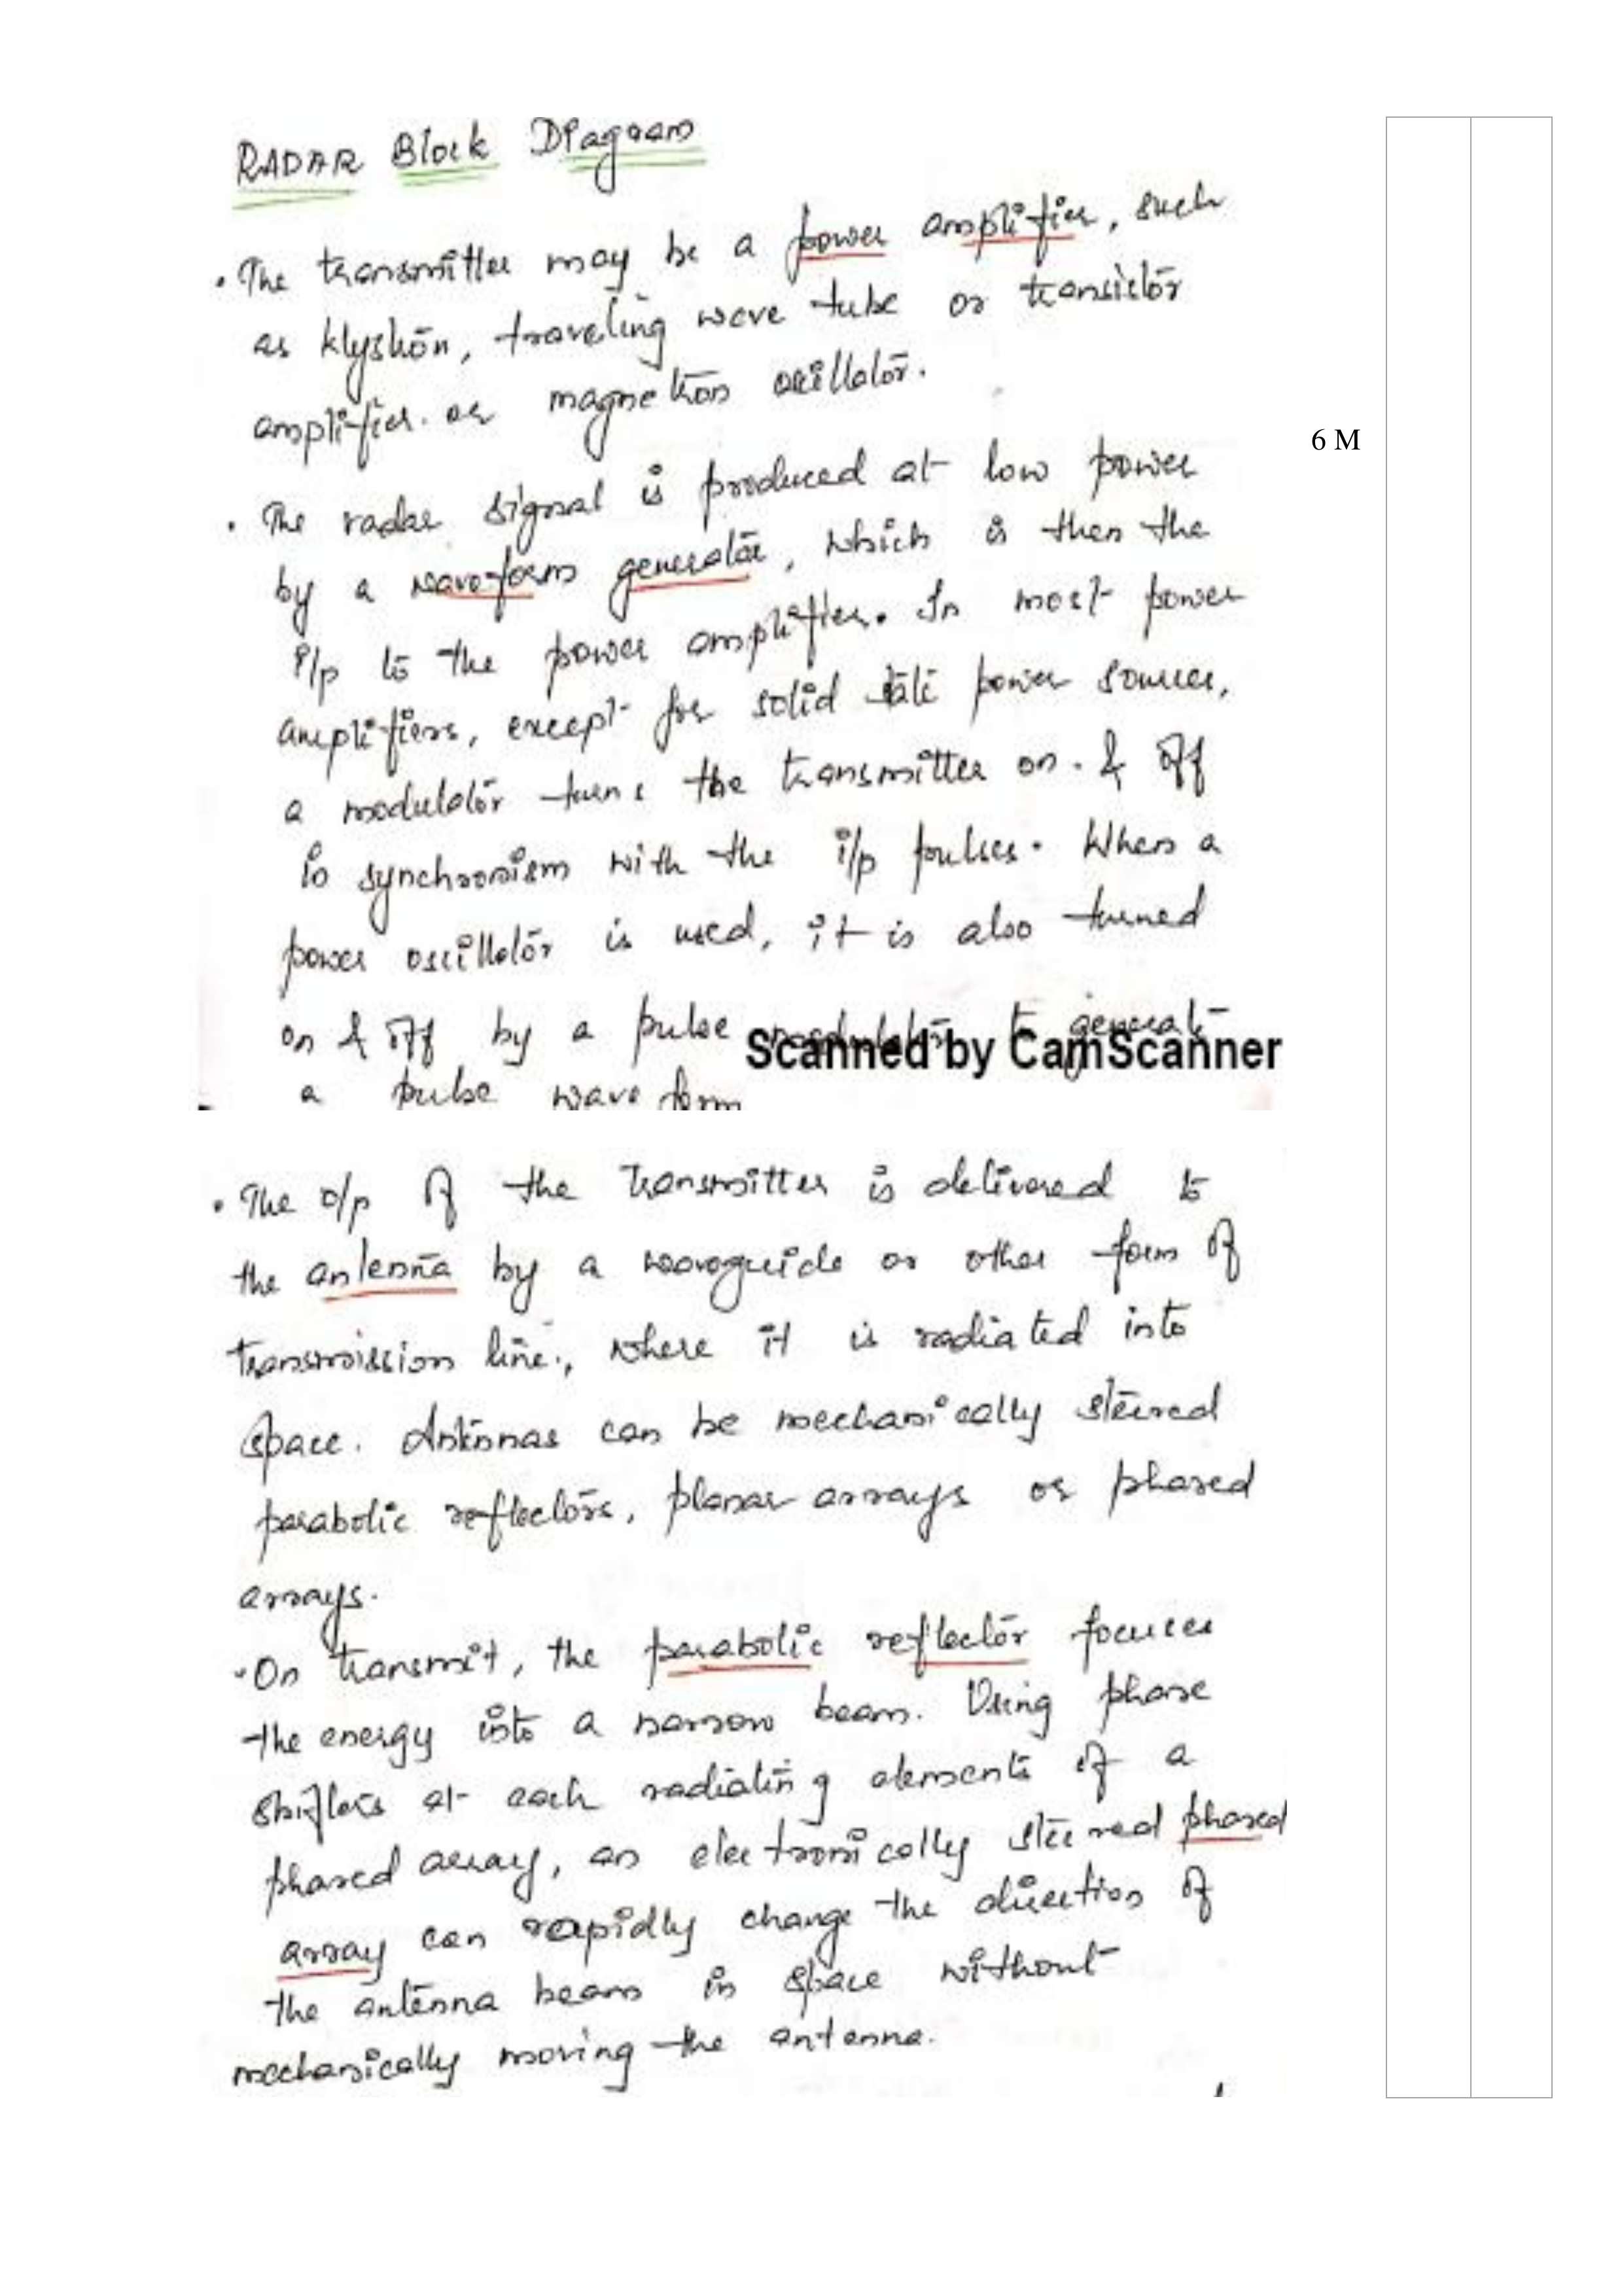 RADAR Block Diagram
. The transmitter may be a power amplifier, such
as klystron, traveling wave tube or transistor
amplifier. or magnetron oscillator.
6 M
. The radar signal is produced at low power
by a waveform generator, which is then the
i/p to the power amplifier. In most power
amplifiers, except for solid state power sources,
a modulator turns the transmitter on. & off
in synchronism with the i/p pulses. When a
power oscillator is used, it is also turned
on & off by a pulse modulator to generate
Scanned by CamScanner
a pulse wave form
. The o/p of the transmitter is delivered to
the antenna by a waveguide or other form of
transmission line., where it is radiated into
space. Antennas can be mechanically steered
parabolic reflectors, planar arrays or phased
arrays.
. On transmit, the parabolic reflector focuses
the energy into a narrow beam. Using phase
shifters at each radiating elements of a
phased array, an electronically steered phased
array can rapidly change the direction of
the antenna beam in space without
mechanically moving the antenna.